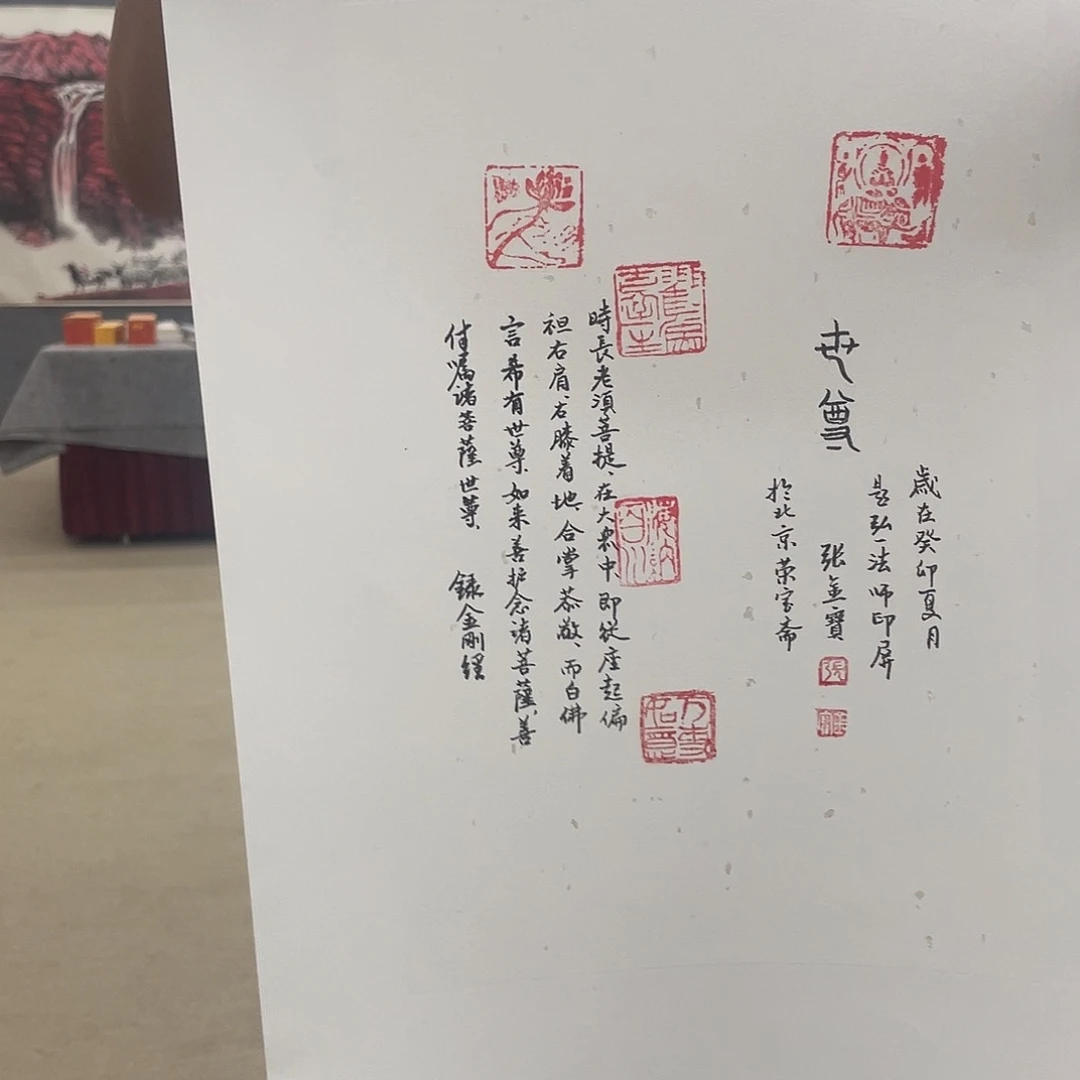 世尊
歲在癸卯夏月
是弘一法师印屏
张金寶
於北京荣宝斋
時長老湏菩提、在大衆中、即從座起偏
袒右肩、右膝着地、合掌恭敬、而白佛
言希有世尊如来善护念诸菩薩、善
付嘱诸菩薩世尊、
録金刚經
海納百川
張